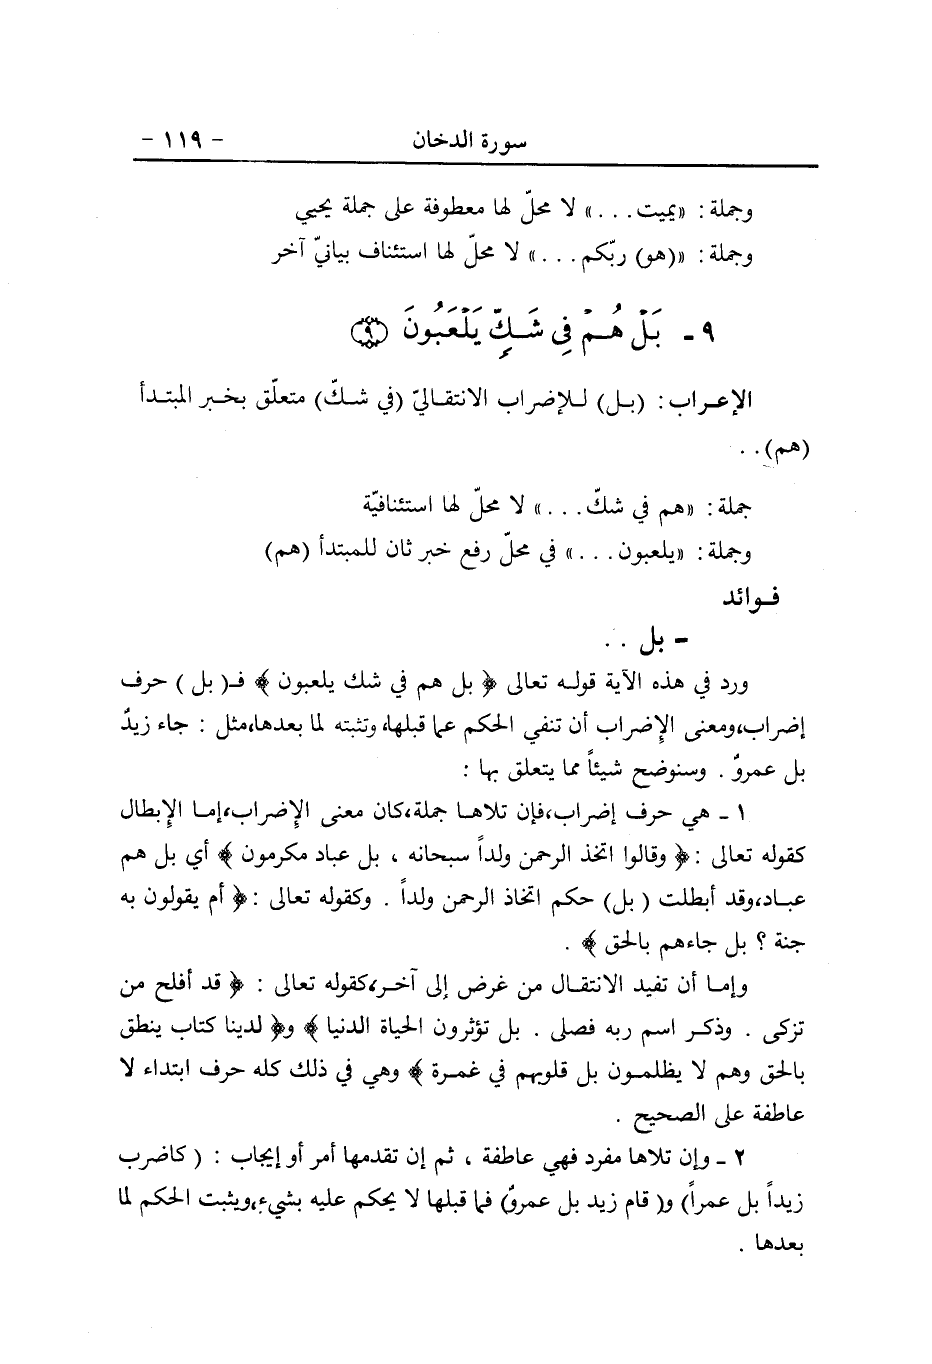 سورة الدخان - ١١٩ -
وجملة: «يميت. . .» لا محلّ لها معطوفة على جملة يحيي
وجملة: «(هو) ربّكم. . .» لا محلّ لها استئناف بيانيّ آخر
٩ - بَلْ هُمْ فِي شَكٍّ يَلْعَبُونَ ﴿٩﴾
الإعـراب: (بـل) لـلإضراب الانتقـاليّ (في شـكّ) متعلّق بخـبر المبتـدأ
(هم). .
جملة: «هم في شكّ. . .» لا محلّ لها استئنافيّة
وجملة: «يلعبون. . .» في محلّ رفع خبر ثان للمبتدأ (هم)
فـوائد
- بل . .
ورد في هذه الآية قولـه تعالى ﴿ بل هم في شك يلعبون ﴾ فـ( بل ) حرف
إضراب،ومعنى الإضراب أن تنفي الحكم عما قبلها، وتثبته لما بعدها،مثل : جاء زيدٌ
بل عمروٌ . وسنوضح شيئاً مما يتعلق بها :
١ - هي حرف إضراب،فإن تلاهـا جملة،كان معنى الإضراب،إمـا الإبطال
كقوله تعالى :﴿ وقالوا اتخذ الرحمن ولداً سبحانه ، بل عباد مكرمون ﴾ أي بل هم
عبـاد،وقد أبطلت ( بل) حكم اتخاذ الرحمن ولداً . وكقوله تعالى :﴿ أم يقولون به
جنة ؟ بل جاءهم بالحق ﴾ .
وإمـا أن تفيد الانتقـال من غرض إلى آخـر،كقوله تعالى : ﴿ قد أفلح من
تزكى . وذكـر اسم ربه فصلى . بل تؤثرون الحياة الدنيا ﴾ و﴿ لدينا كتاب ينطق
بالحق وهم لا يظلمـون بل قلوبهم في غمـرة ﴾ وهي في ذلك كله حرف ابتداء لا
عاطفة على الصحيح .
٢ - وإن تلاها مفرد فهي عاطفة ، ثم إن تقدمها أمر أو إيجاب : ( كاضرب
زيداً بل عمراً) و( قام زيد بل عمروٌ) فما قبلها لا يحكم عليه بشيء،ويثبت الحكم لما
بعدها .